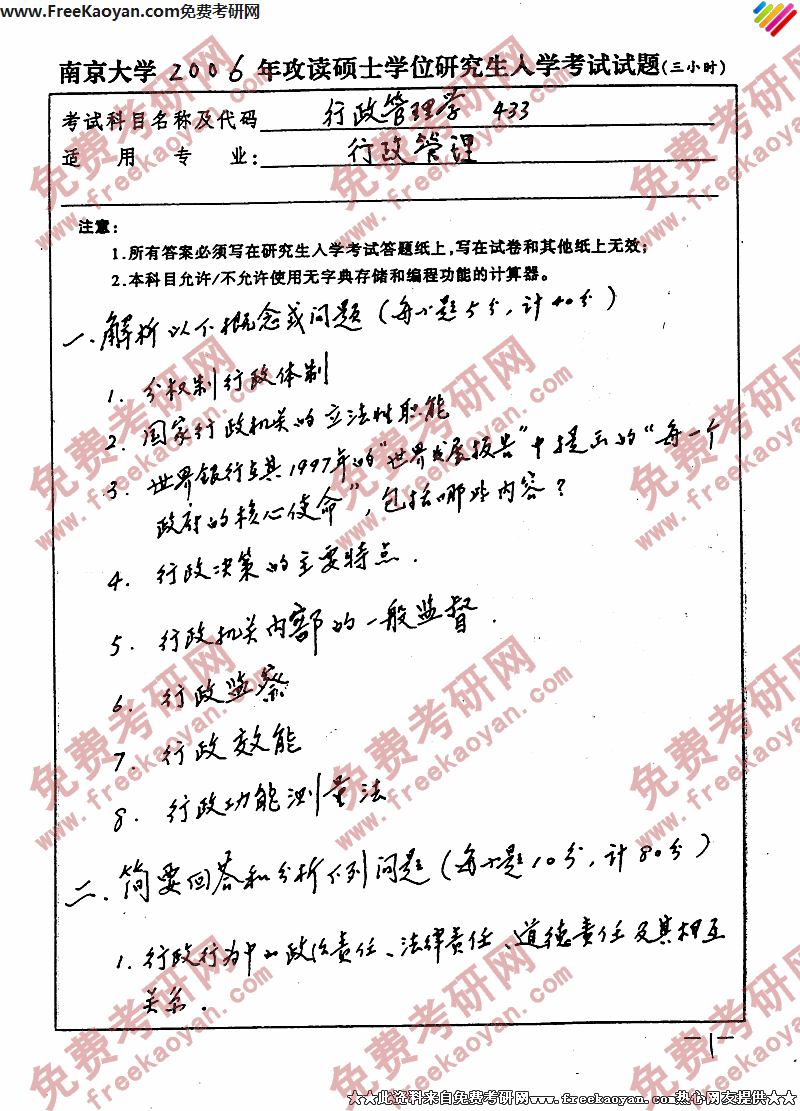 www.FreeKaoyan.com免费考研网
南京大学 2006 年攻读硕士学位研究生入学考试试题(三小时)
考试科目名称及代码 行政管理学 433
适用专业: 行政管理
注意:
1.所有答案必须写在研究生入学考试答题纸上,写在试卷和其他纸上无效;
2.本科目允许/不允许使用无字典存储和编程功能的计算器。
一.解析以下概念或问题(每小题5分,计40分)
1. 分权制行政体制
2. 国家行政机关的立法性职能
3. 世界银行在其1997年的“世界发展报告”中提出的“每一个
政府的核心使命”,包括哪些内容?
4. 行政决策的主要特点.
5. 行政机关内部的一般监督.
6. 行政监察
7. 行政效能
8. 行政功能测量法
二.简要回答和分析下列问题(每小题10分,计80分)
1. 行政行为中的政治责任、法律责任、道德责任及其相互
关系.
-1-
★★此资料来自免费考研网www.freeKaoyan.com热心网友提供★★
免费考研网
www.freekaoyan.com